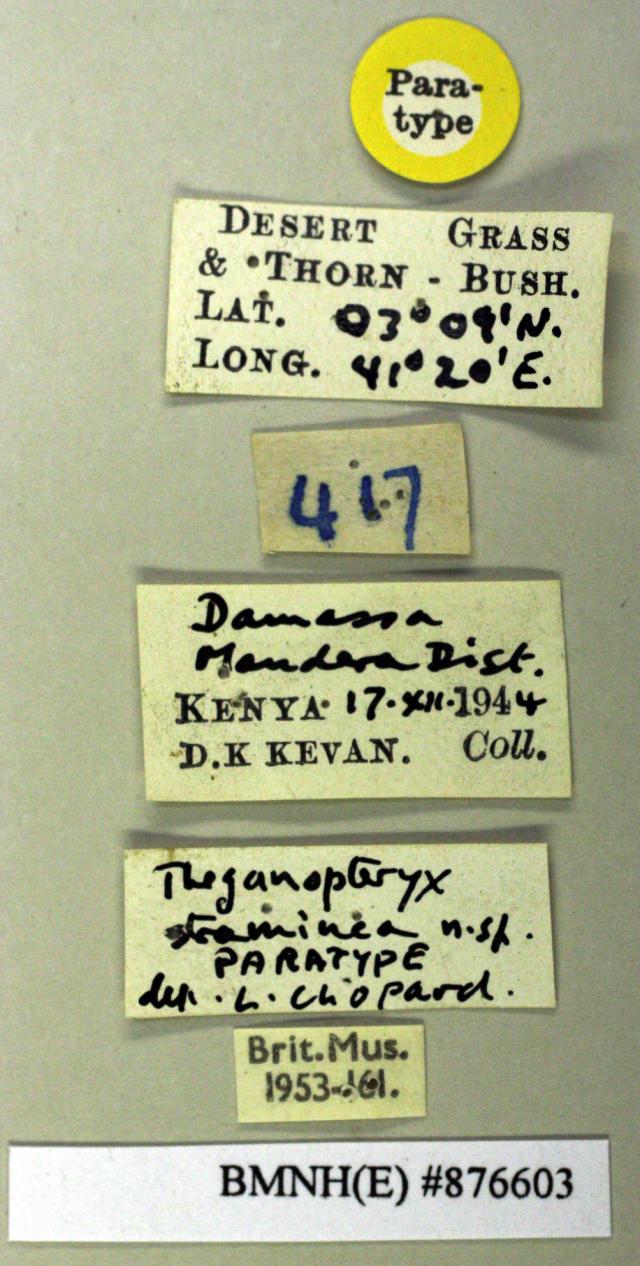 Para-
type
DESERT GRASS
& THORN - BUSH.
LAT. 03° 09' N.
LONG. 41° 20' E.
417
Damassa
Mandera Dist.
KENYA 17.XII.1944
D.K KEVAN. Coll.
Theganopteryx
straminea n.sp.
PARATYPE
det. L. Chopard.
Brit.Mus.
1953-161.
BMNH(E) #876603